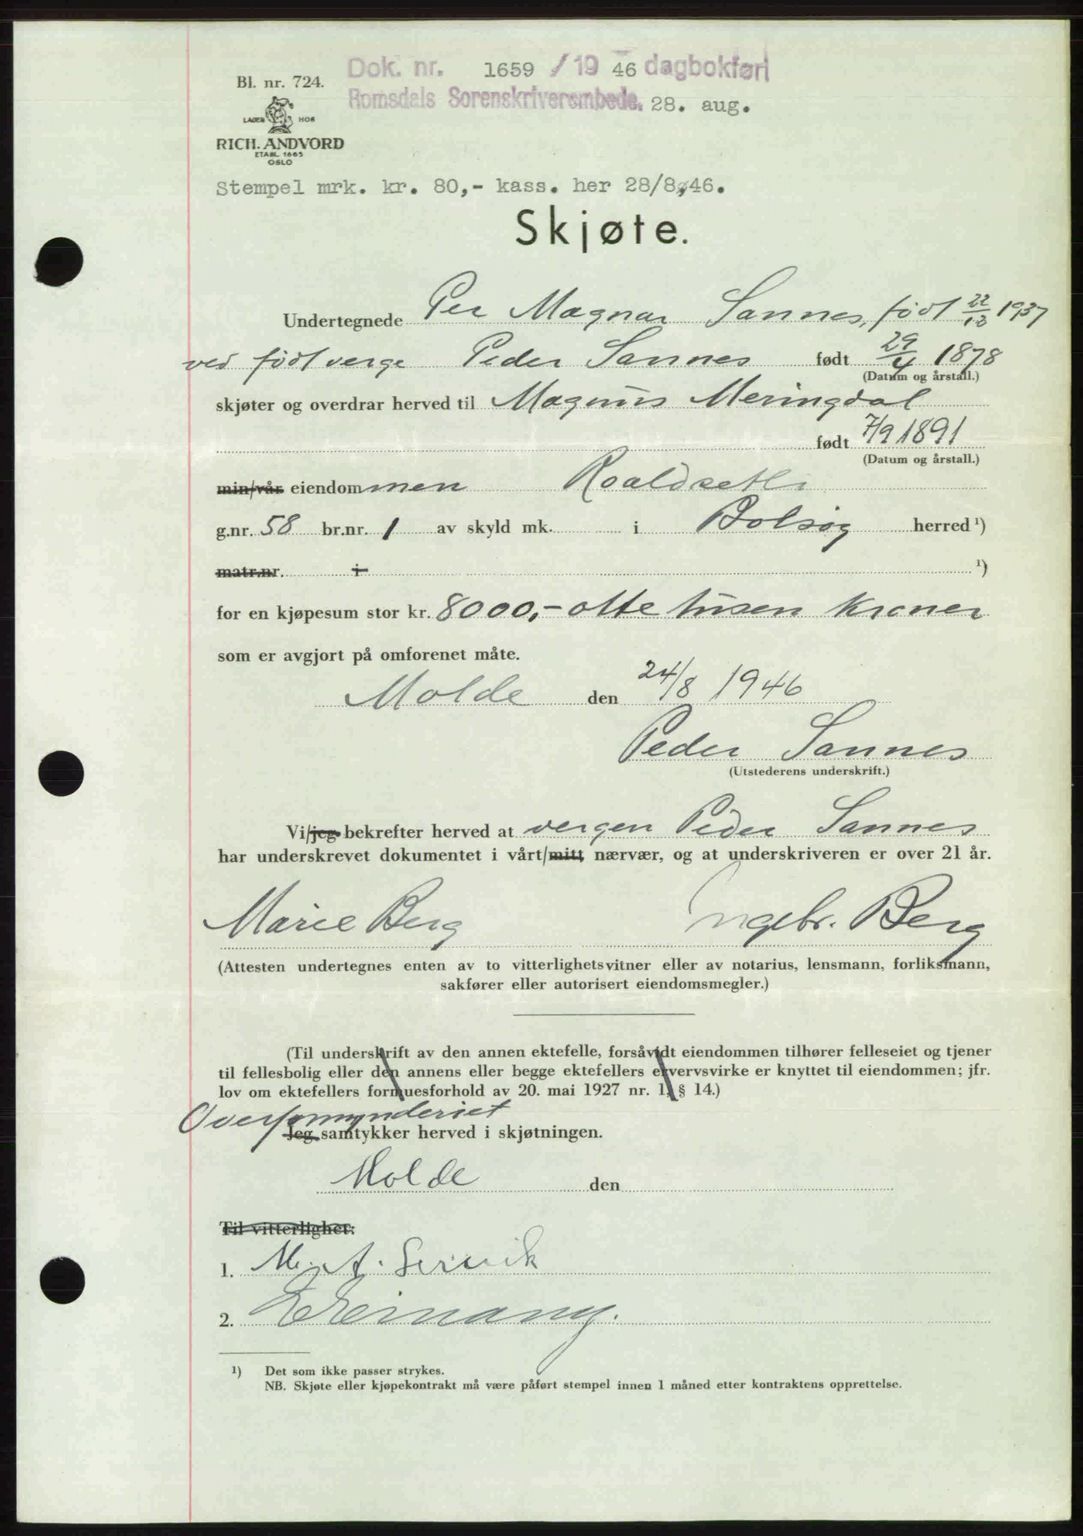 Dok. nr. 1659 / 19 46 dagbokført
Bl. nr. 724.
Romsdals Sorenskriverembede. 28. aug.
LAGER HOS
RICH. ANDVORD
ETABL. 1865
OSLO
Stempel mrk. kr. 80,- kass. her 28/8,46.
Skjøte.
Undertegnede Per Magnar Sannes, født 22/12 1937
ved født verge Peder Sannes født 29/4 1878
(Datum og årstall.)
skjøter og overdrar herved til Magnus Meringdal
født 7/9 1891
(Datum og årstall.)
min/vår eiendommen Roaldsetli
g.nr. 58 br.nr. 1 av skyld mk. i Bolsøy herred ¹)
matr.nr. i ¹)
for en kjøpesum stor kr. 8000,- otte tusen kroner
som er avgjort på omforenet måte.
Molde den 24/8 1946
Peder Sannes
(Utstederens underskrift.)
Vi/jeg bekrefter herved at vergen Peder Sannes
har underskrevet dokumentet i vårt/mitt nærvær, og at underskriveren er over 21 år.
Marie Berg Ingebr. Berg
(Attesten undertegnes enten av to vitterlighetsvitner eller av notarius, lensmann, forliksmann,
sakfører eller autorisert eiendomsmegler.)
(Til underskrift av den annen ektefelle, forsåvidt eiendommen tilhører felleseiet og tjener
til fellesbolig eller den annens eller begge ektefellers ervervsvirke er knyttet til eiendommen; jfr.
lov om ektefellers formuesforhold av 20. mai 1927 nr. 1, § 14.)
Overformynderiet
Jeg samtykker herved i skjøtningen.
Molde den
Til vitterlighet:
1. M. A.
2.
¹) Det som ikke passer strykes.
NB. Skjøte eller kjøpekontrakt må være påført stempel innen 1 måned etter kontraktens opprettelse.